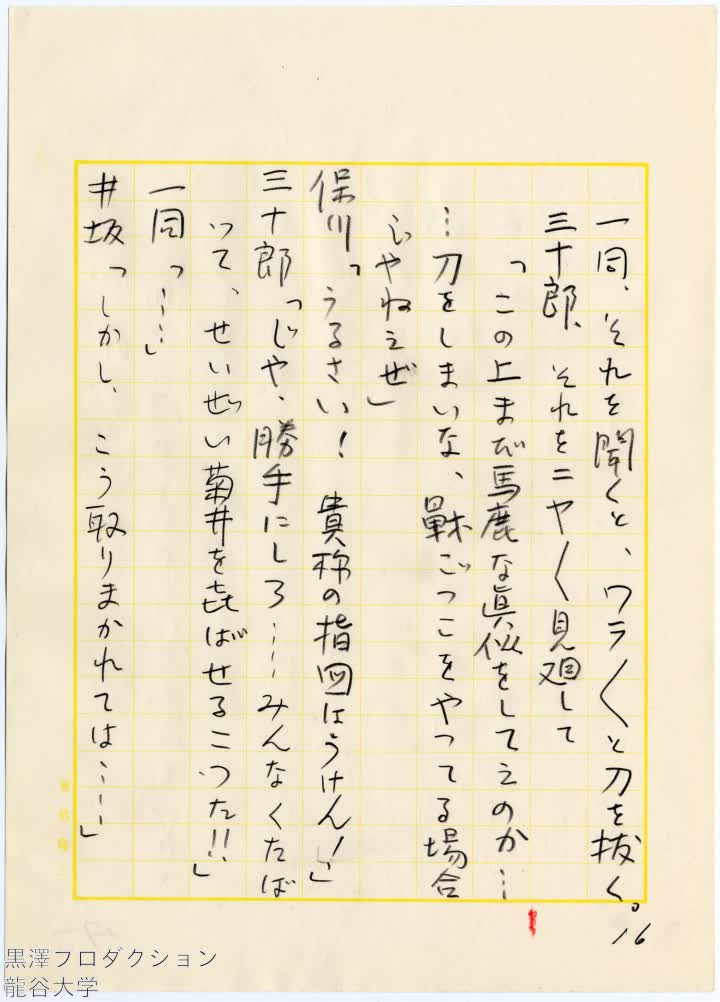 一同、それを聞くと、ワラ〱と刀を抜く。
三十郎、それをニヤ〱見廻して
「この上まだ馬鹿な眞似をしてえのか…
…刀をしまいな、戦ごっこをやってる場合
じやねえぜ」
保川「うるさい！　貴様の指図はうけん！」
三十郎「じや、勝手にしろ……みんなくたば
って、せいぜい菊井を㐂ばせるこった!!」
一同「……」
井坂「しかし、こう取りまかれては……」
16
黒澤プロダクション
龍谷大学